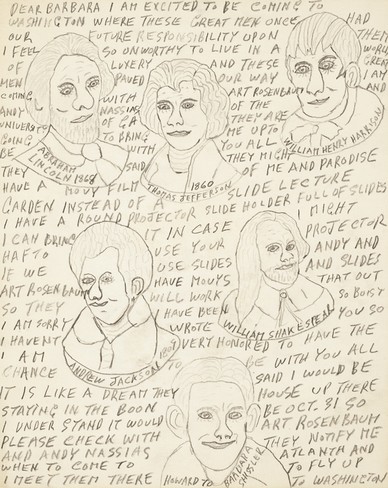 DEAR BARBARA I AM EXCITED TO BE COMING TO
WASHINGTON WHERE THESE GREAT MEN ONCE HAD
OUR FUTURE RESPONSIBILITY UPON THEM
I FEEL SO ONWORTHY TO LIVE IN A WORLD
OF LUXERY AND THESE GREAT
MEN PAVED OUR WAY I AM
COMING WITH ART ROSENBAUM AND
ANDY NASSIAS OF THE
UNIVERSTO OF GA THEY ARE
GOING TO BRING ME UP TO
BE WITH YOU ALL
THEY SAID THEY MIGHT
HAVE A MOVY FILM OF ME AND PARODISE
GARDEN INSTEAD OF A SLIDE LECTURE
I HAVE A ROUND PROJECTOR SLIDE HOLDER FULL OF SLIDES
I CAN BRING IT IN CASE I MIGHT
HAFTO USE YOUR PROJECTOR
IF WE USE SLIDES ANDY AND
ART ROSENBAUM HAVE MOVYS AND SLIDES
SO THEY WILL WORK THAT OUT
I AM SORRY I HAVE BEEN SO BUISY
I HAVENT WROTE YOU SO
I AM VERY HONORED TO HAVE THE
CHANCE TO BE WITH YOU ALL
IT IS LIKE A DREAM THEY SAID I WOULD BE
STAYING IN THE BOON HOUSE UP THERE
I UNDER STAND IT WOULD BE OCT. 31 SO
PLEASE CHECK WITH ART ROSENBAUM
AND ANDY NASSIAS THEY NOTIFY ME
WHEN TO COME TO ATLANTA AND
I MEET THEM THERE TO FLY UP
TO WASHINGTON
ABRAHAM
LINCOLN 1860
1860
THOMAS JEFFERSON
WILLIAM HENRY HARRISON
ANDREW JACKSON
WILLIAM SHAKESPEAR
HOWARD TO
BARBARA